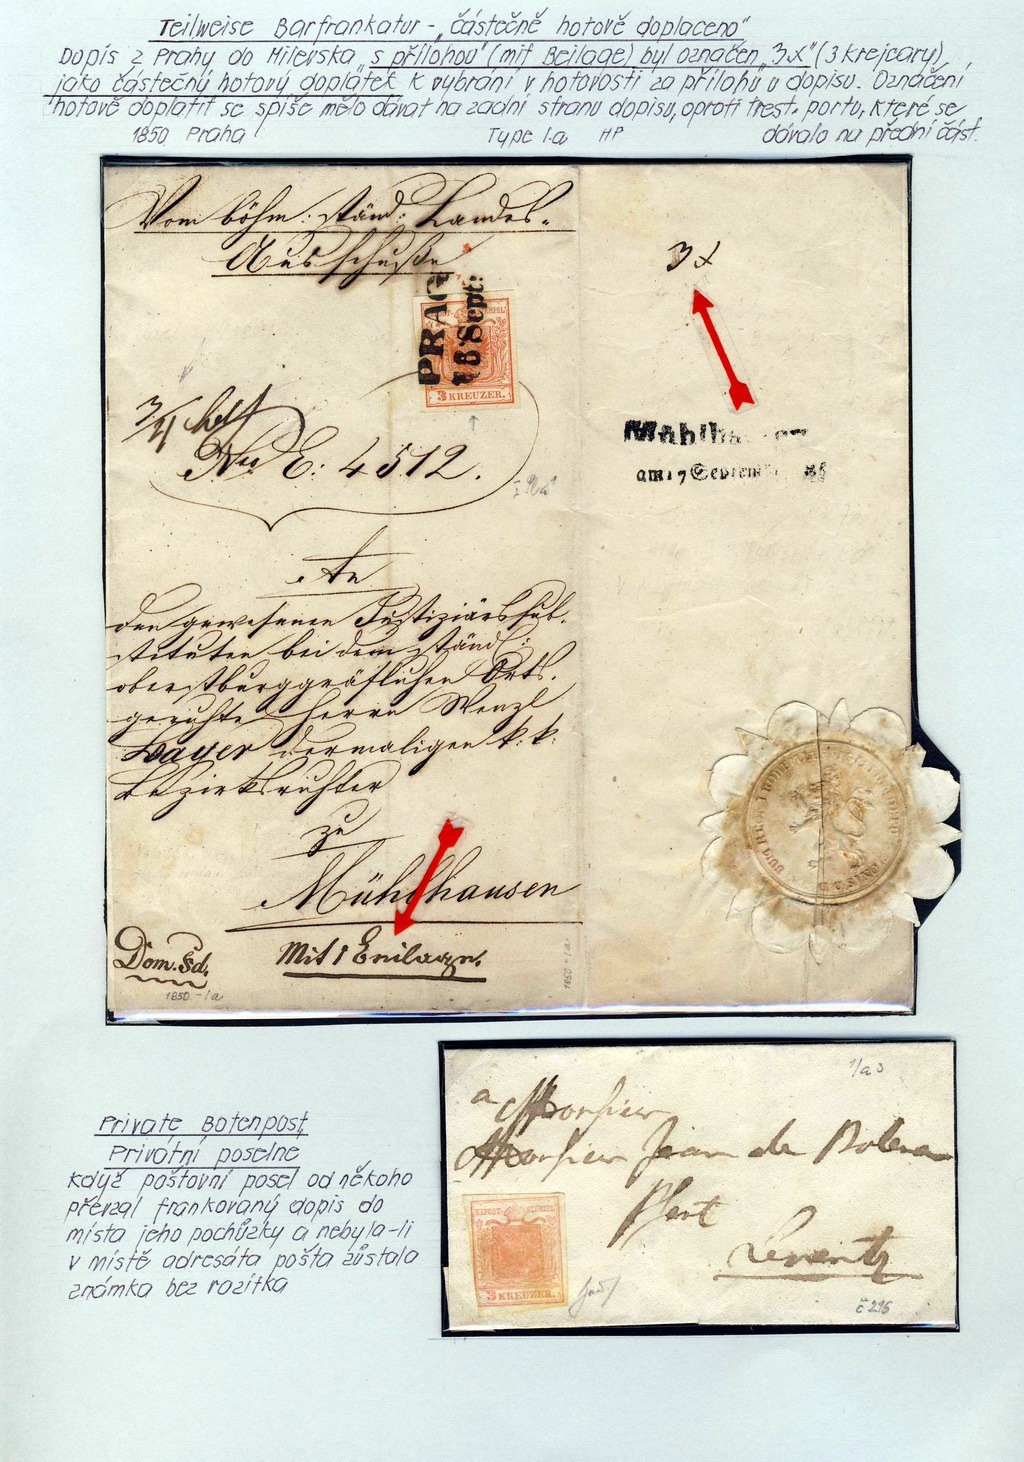 Teilweise Barfrankatur - „částečně hotově doplaceno"
Dopis z Prahy do Milevska „s přílohou" (mit Beilage) byl označen „3x" (3 krejcary),
jako částečný hotový doplatek k vybrání v hotovosti za přílohu v dopisu. Označení
hotově doplatit se spíše mělo dávat na zadní stranu dopisu, oproti trest. portu, které se
dávalo na přední část.
1850 Praha
Type I.a HP
Vom böhm: ständ: Landes-
Ausschuße
PRAG
18 Sept:
3 KREUZER.
Nro E: 4512.
3x
am 17 Septem
An
den gewesenen Justiziärssub-
stituten bei dem ständ:
oberstburggräflichen Orts-
gerichte Herrn Wenzl
Bayer dermaligen k: k:
Bezirksrichter
zu
Mühlhausen
Mit 1 Beilage.
Dom. Sd.
1850 - Ia
1850 - Ia
Private Botenpost
Privátní poselne
Když poštovní posel od někoho
převzal frankovaný dopis do
místa jeho pochůzky a nebyla-li
v místě adresáta pošta zůstala
známka bez razítka
1/a 3
a Monsieur
Monsieur Jean de
KK POST-STEMPEL
3 KREUZER.
Leventz
č 216